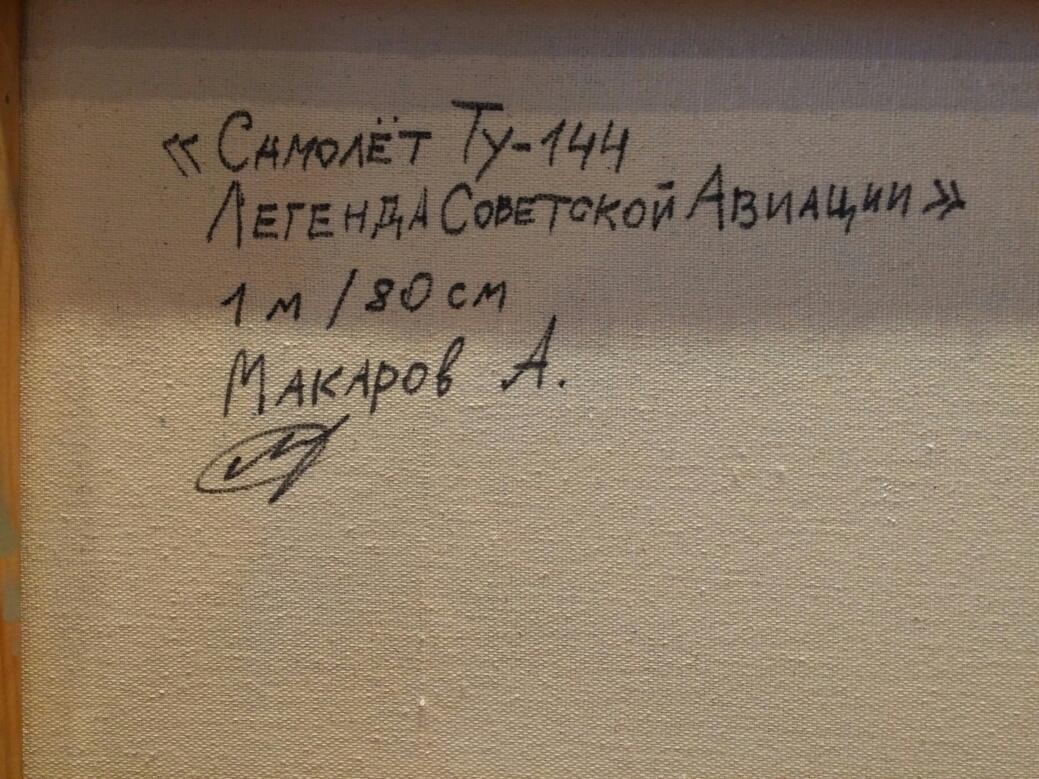 «Самолёт Ту-144
Легенда Советской Авиации»
1 м / 80 см
Макаров А.